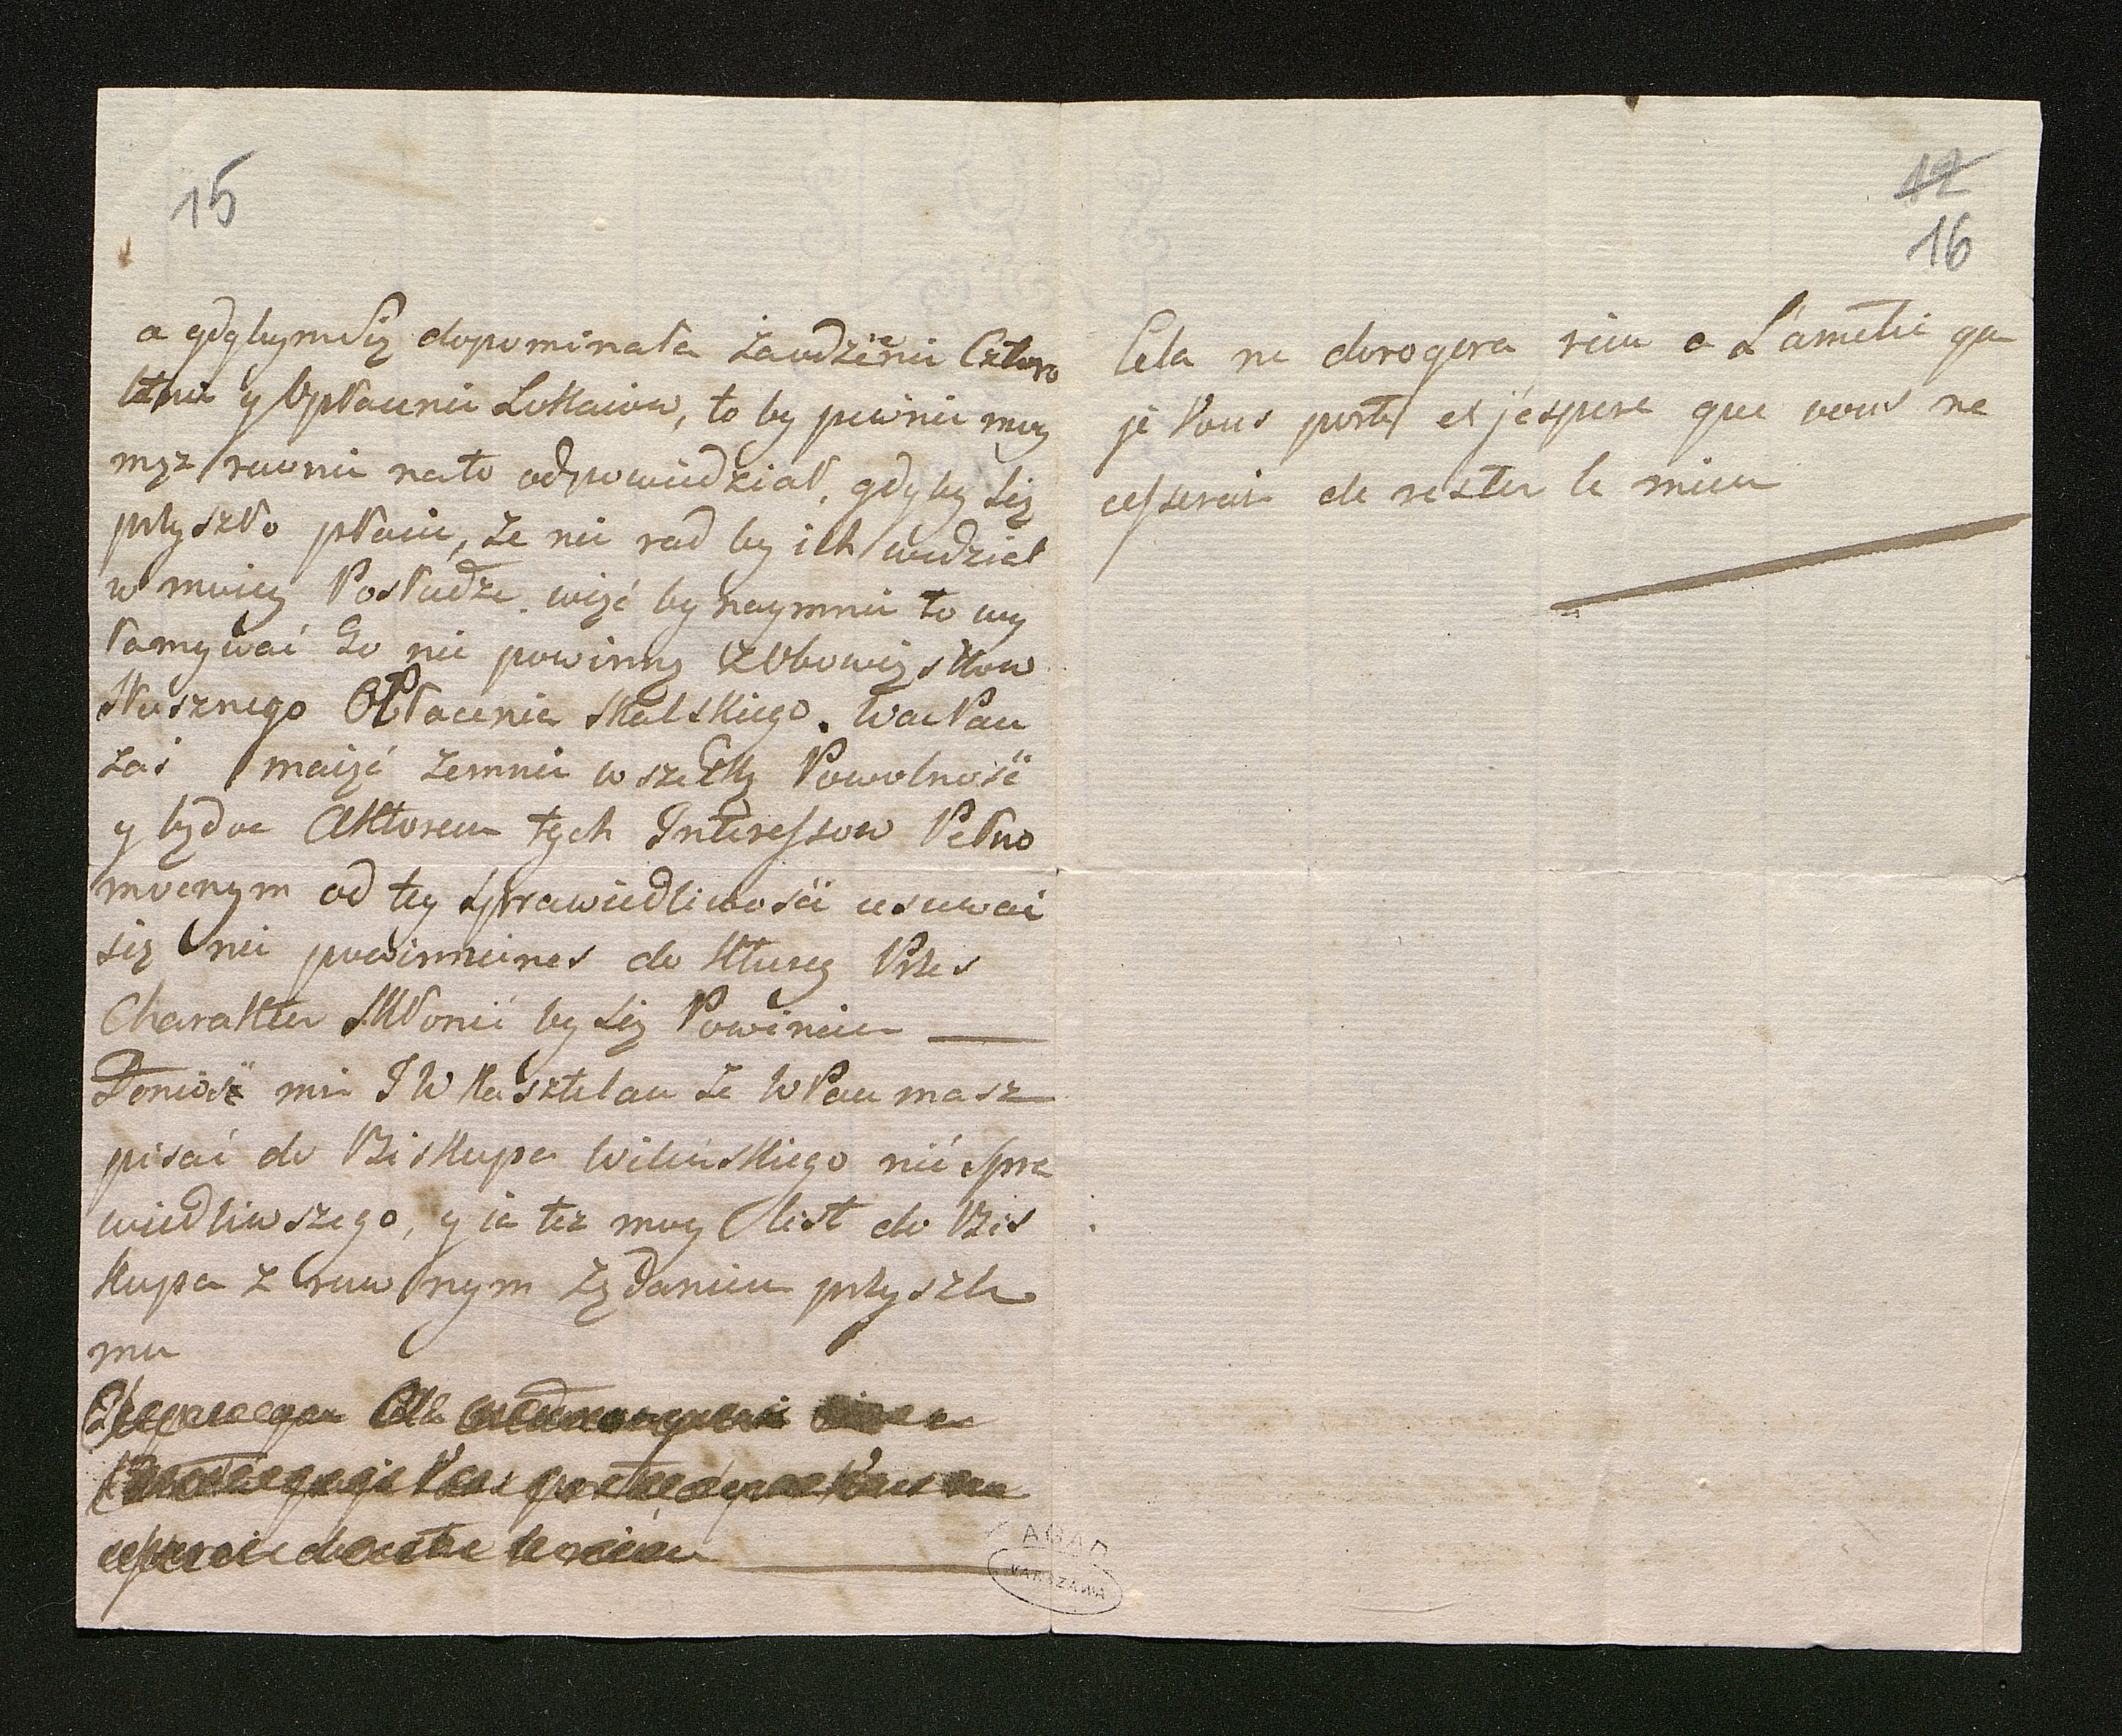 15
a gdybym się dopominała zaodzienie Cztero
letnie y Opłacenie Lokaiow, to by pewnie moy
mąz rownie nato odpowiedział, gdyby się
przyszło płacic, ze nie rad by ich widział
w moiey Posłudze. więc bynaymnie to wy
łamywać Go nie powinny z Obowiązkow
słusznego Opłacenia Skalskiego. WacPan
zas maiąć zemnie wszelką Powolność
y będąc Aktorem tych Interessow Pełno
mocnym od tey sprawiedliwości usuwać
się nie powinnienes do kturey Przes
Charakter skłonić by się Powinien
Doniosł mi JW Kasztelan ze WPan masz
pisać do Biskupa Wilenskiego nić spra
wiedliwszego, y ia tez moy list do Bis
kupa z rownym ządaniem przyszle
mu
12
16
Cela ne dorogera rien a L'amitie que
je Vous porte et j'espere que vous ne
cesserais de rester le mien
AGAD
WARSZAWA